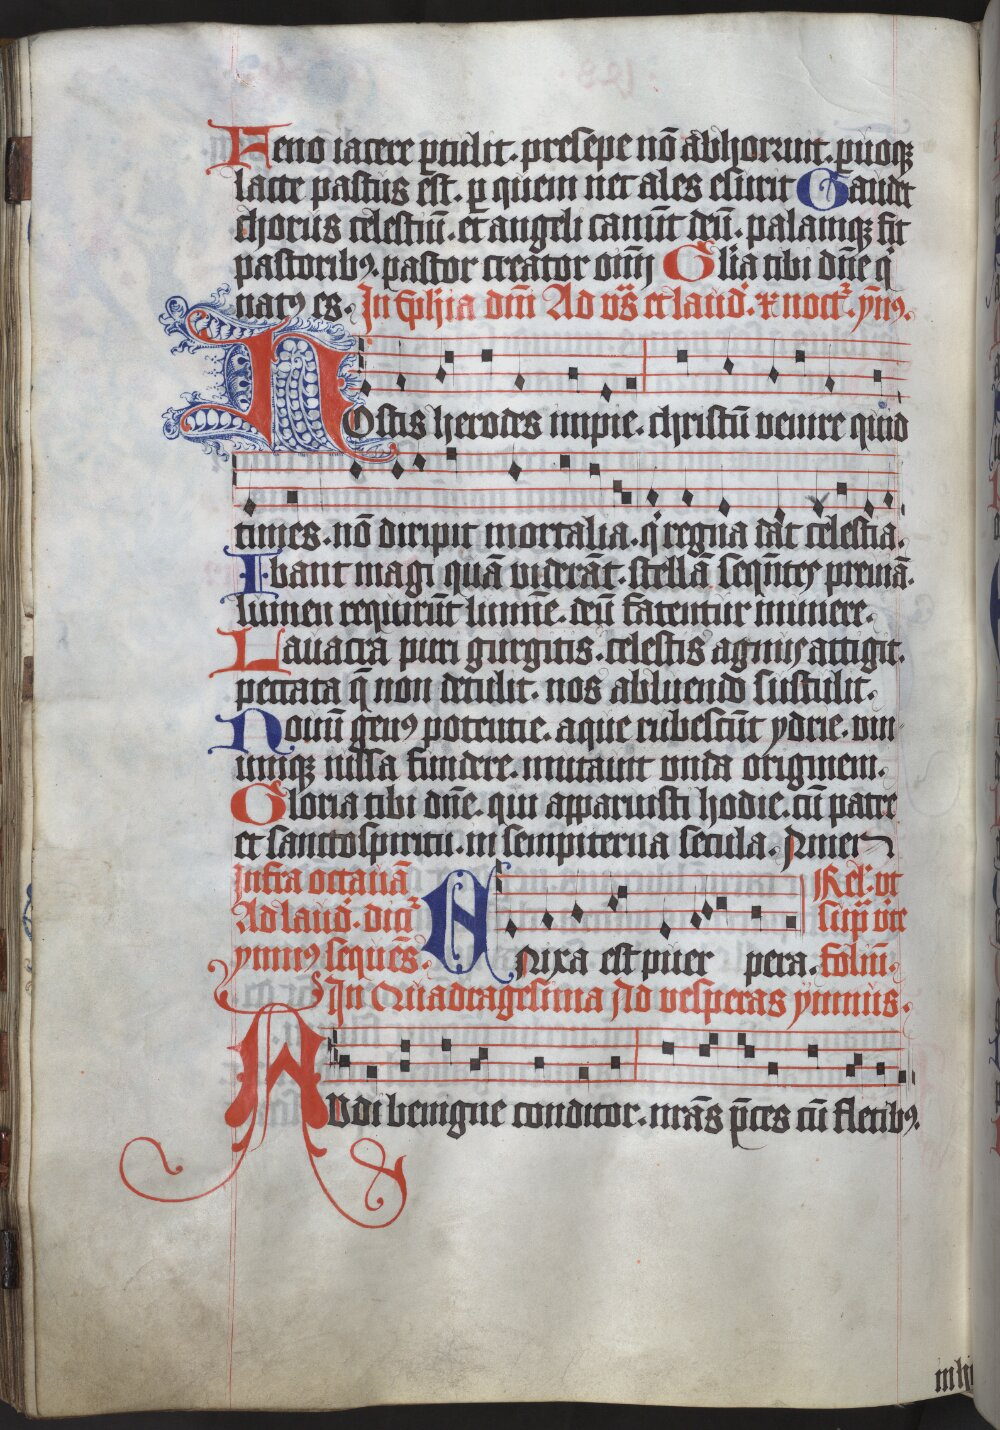 Feno iacere ꝑtulit. presepe nō abhorruit. ꝑuoqꝫ
lacte pastus est. ꝑ quem nec ales esurit Gaudet
chorus celestiū. et angeli canūt deū. palamqꝫ fit
pastoribꝰ. pastor creator oīm Glīa tibi dn̄e q̇
natꝰ es. In Epyhīa dn̄i Ad vs̄ et laud̾. x noct̾. ym̄ꝰ.
Hostis herodes impie. christū venire quid
times. nō diripit mortalia. q̇ regna dāt celestia.
Ibant magi quā viderāt. stellā seqn̄tes preuiā.
lumen requirūt lumīe. deū fatentur munere.
Lauacra puri gurgitis. celestis agnus attigit.
peccata q̄ non detulit. nos abluendo sustulit.
Nouū genꝰ potentie. aque rubescūt ydrie. vin
umqꝫ iussa fundere. mutauit vnda originem.
Gloria tibi dn̄e. qui apparuisti hodie. cū patre
et sancto spiritu. in sempiterna secula. Amen
Infra octauā
Ad laud̾. dict̾
ymnꝰ sequēs.
Enixa est puer pera.
Rel̾. vt
sup̄ vīe
foliū.
In Quadragesima Ad vesperas ymnus.
Audi benigne conditor. nr̄as p̄ces cū fletibꝰ.